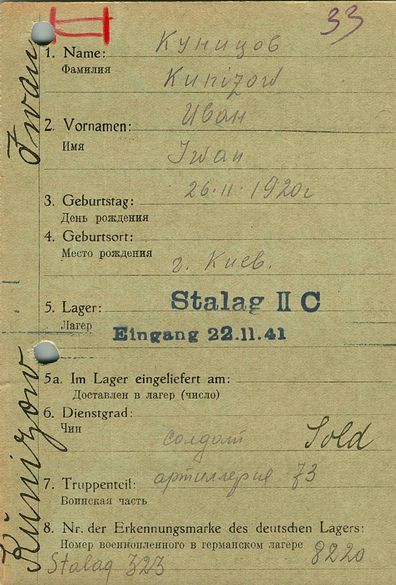 33
Куницов
1. Name:
Фамилия
Kunizow
Иван
2. Vornamen:
Имя
Iwan
26.11.1920г
3. Geburtstag:
День рождения
4. Geburtsort:
Место рождения
г. Киев.
Stalag II C
5. Lager:
Лагер
Eingang 22.11.41
5a. Im Lager eingeliefert am:
Доставлен в лагер (число)
6. Dienstgrad:
Чин
солдат Sold
артиллерия 73
7. Truppenteil:
Воинская часть
8. Nr. der Erkennungsmarke des deutschen Lagers:
Номер военнопленного в германском лагере
8220
Stalag 323
Kunizow Iwan